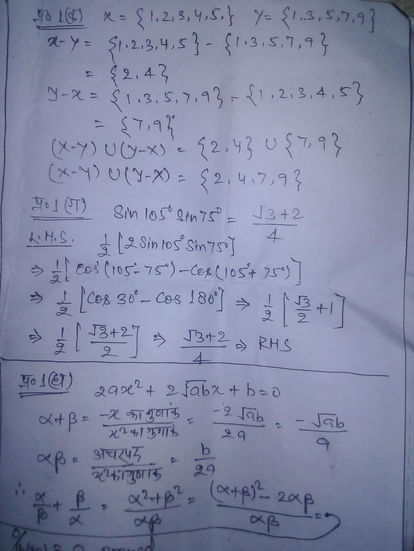 प्र० 1(ड़) X = {1,2,3,4,5,} Y = {1,3,5,7,9}
X-Y = {1,2,3,4,5} - {1,3,5,7,9}
= {2,4}
Y-X = {1,3,5,7,9} - {1,2,3,4,5}
= {7,9}
(X-Y) ∪ (Y-X) = {2,4} ∪ {7,9}
(X-Y) ∪ (Y-X) = {2,4,7,9}
प्र० 1(ग) Sin 105° Sin 75° = √3+2/4
L.H.S. 1/2 [2 Sin 105° Sin 75°]
⇒ 1/2 [Cos (105°-75°) - Cos (105°+75°)]
⇒ 1/2 [Cos 30° - Cos 180°] ⇒ 1/2 [√3/2 + 1]
⇒ 1/2 [√3+2/2] ⇒ √3+2/4 ⇒ RHS
प्र० 1(ह) 2ax² + 2√ab x + b = 0
α+β = -x का गुणांक/x² का गुणांक = -2√ab/2a = -√ab/a
αβ = अचरपद/x² का गुणांक = b/2a
∴ α/β + β/α = α²+β²/αβ = (α+β)² - 2αβ/αβ =